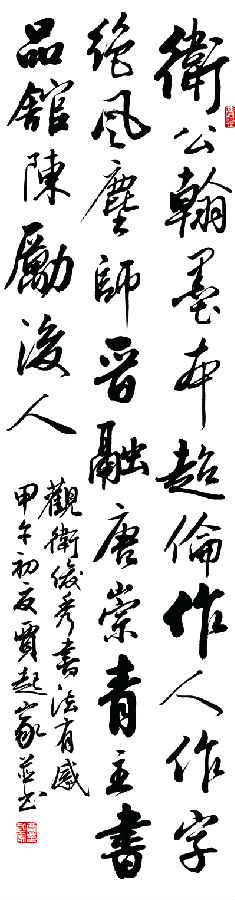 衛公翰墨本超倫作人作字
絶風塵師晋融唐崇青主書
品館陳勵後人
觀衛俊秀書法有感
甲午初夏賈起家並书